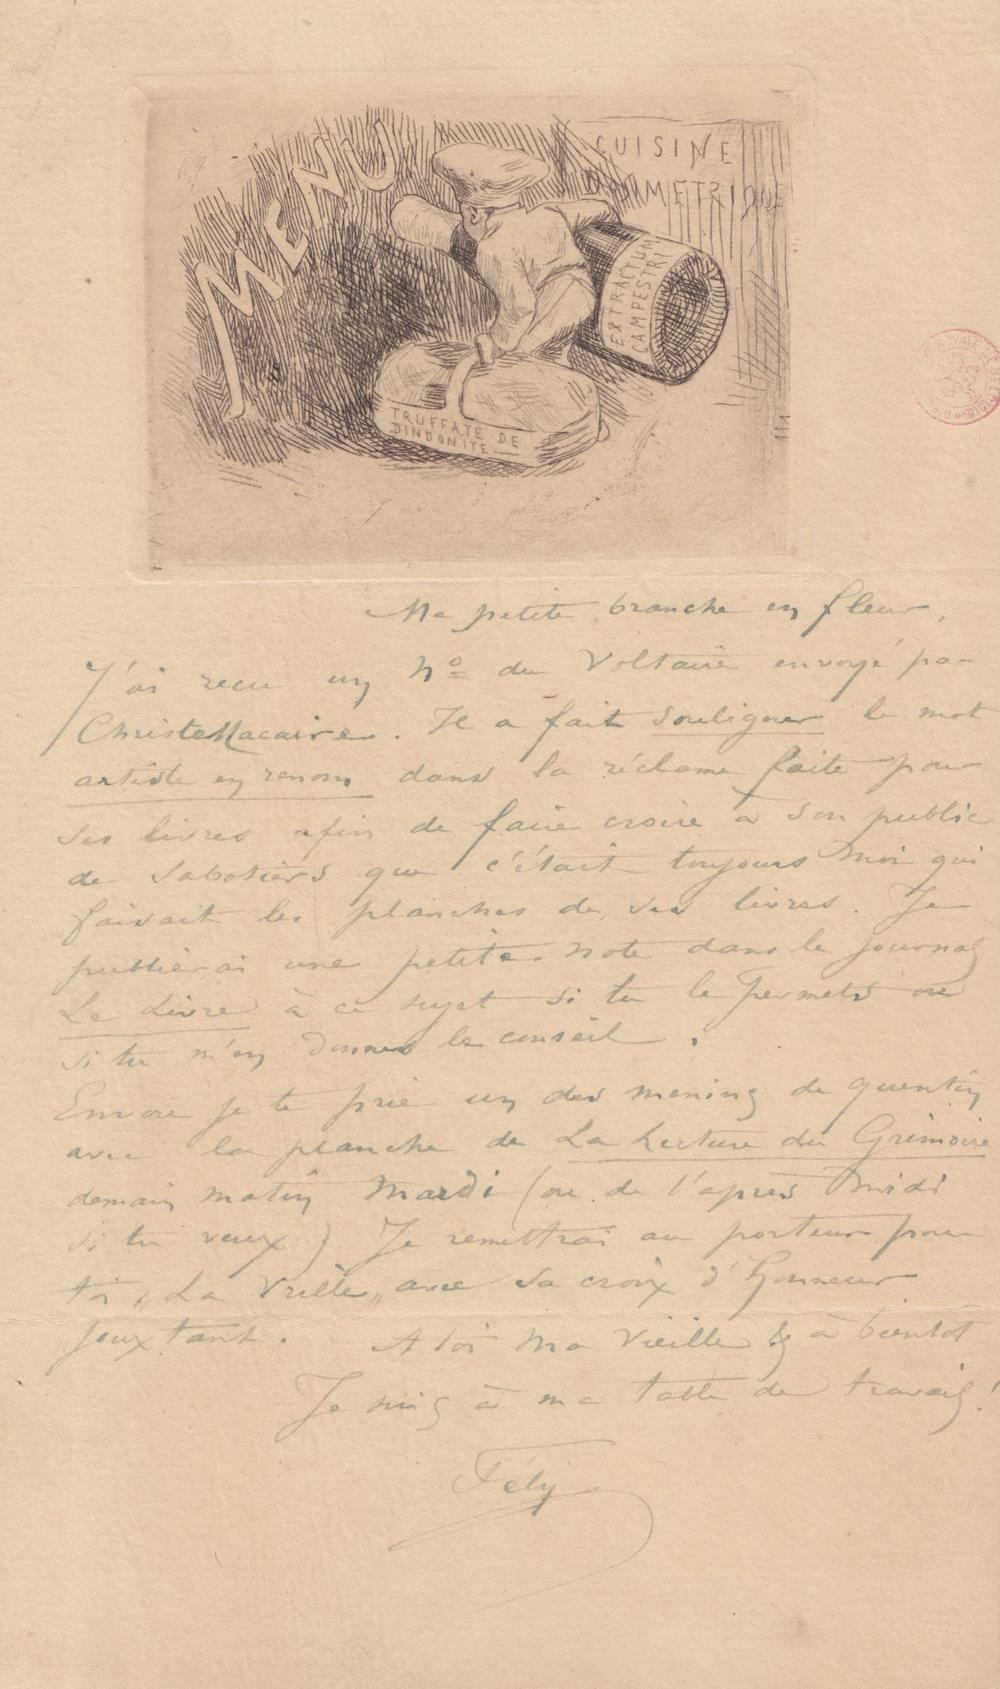 MENU
CUISINE
DOSIMETRIQUE
EXTRACTUM
CAMPESTRI
TRUFFATE DE
DINDONITE
Ma petite branche en fleur,
J'ai recu un No du Voltaire envoyé par
Christe Macaire. Il a fait souligner le mot
artiste en renom dans la réclame faite pour
ses livres afin de faire croire à son public
de sabotiers que c'était toujours moi qui
faisait les planches de ses livres. Je
publierai une petite note dans le journal
Le Livre à ce sujet si tu le permets ou
si tu m'en donnes le conseil.
Envoie je te prie un des mening de quentin
avec la planche de La Lecture du Grimoire
demain matin Mardi (ou de l'après midi
si tu veux) Je remettrai au porteur pour
toi „La Vrille„ avec sa croix d'Honneur
jouxtant. A toi Ma Vieille & à bientot
Je suis à ma table de travail!
Fély